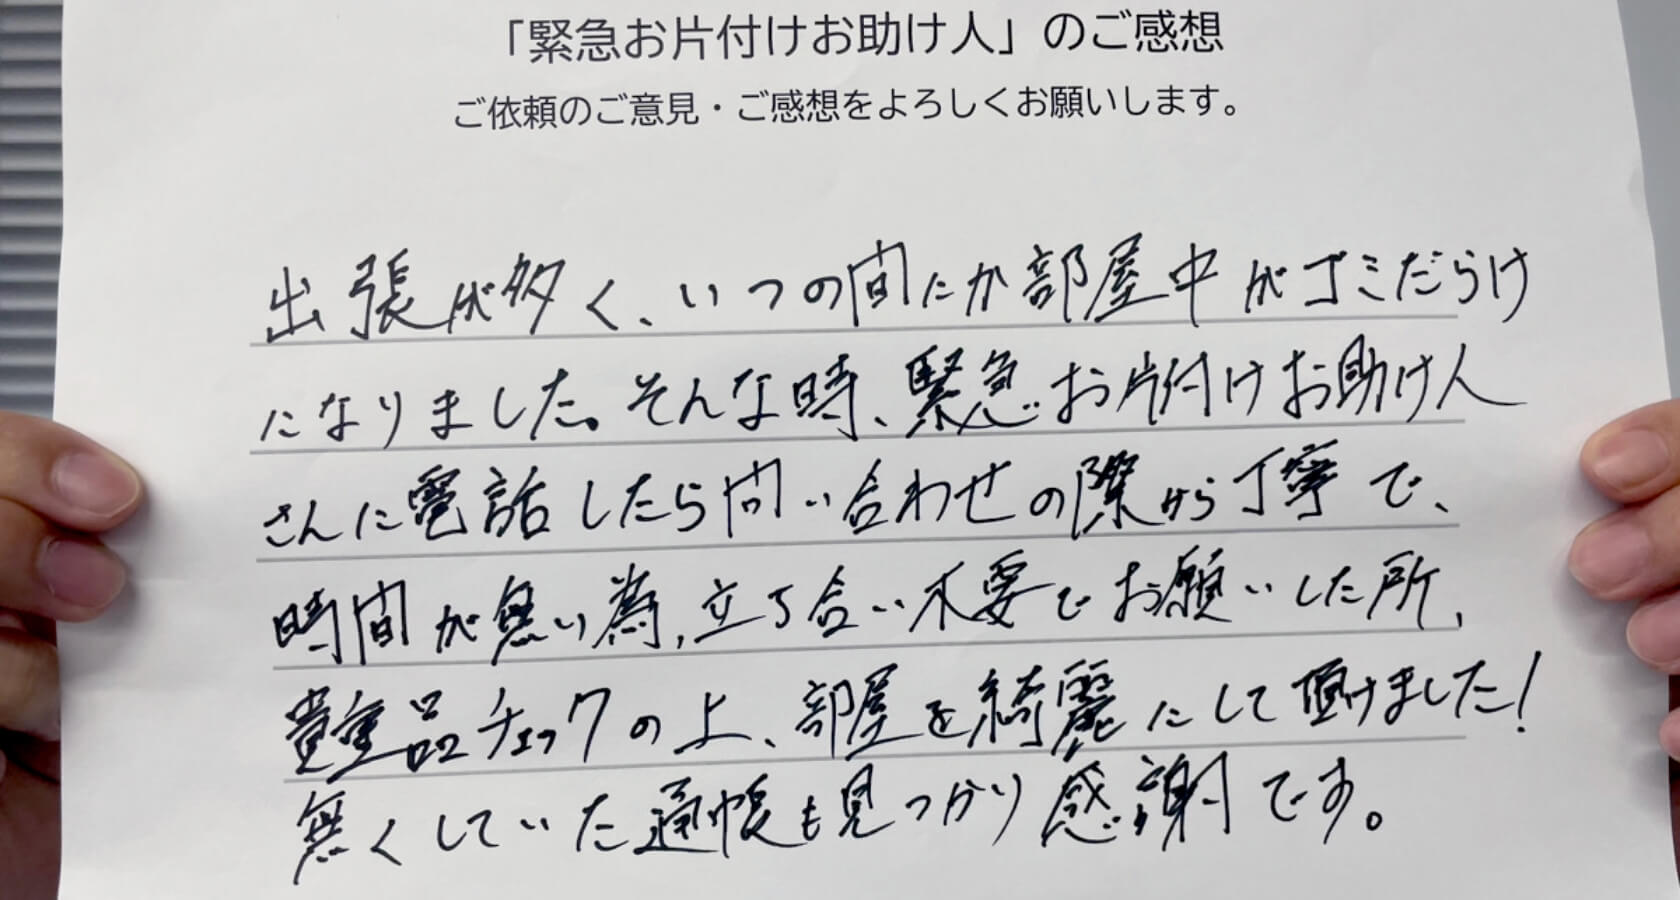 「緊急お片付けお助け人」のご感想
ご依頼のご意見・ご感想をよろしくお願いします。
出張が多く、いつの間にか部屋中がゴミだらけ
になりました。そんな時、緊急お片付けお助け人
さんに電話したら問い合わせの際から丁寧で、
時間が無い為、立ち合い不要でお願いした所、
貴重品チェックの上、部屋を綺麗にして頂けました！
無くしていた通帳も見つかり感謝です。